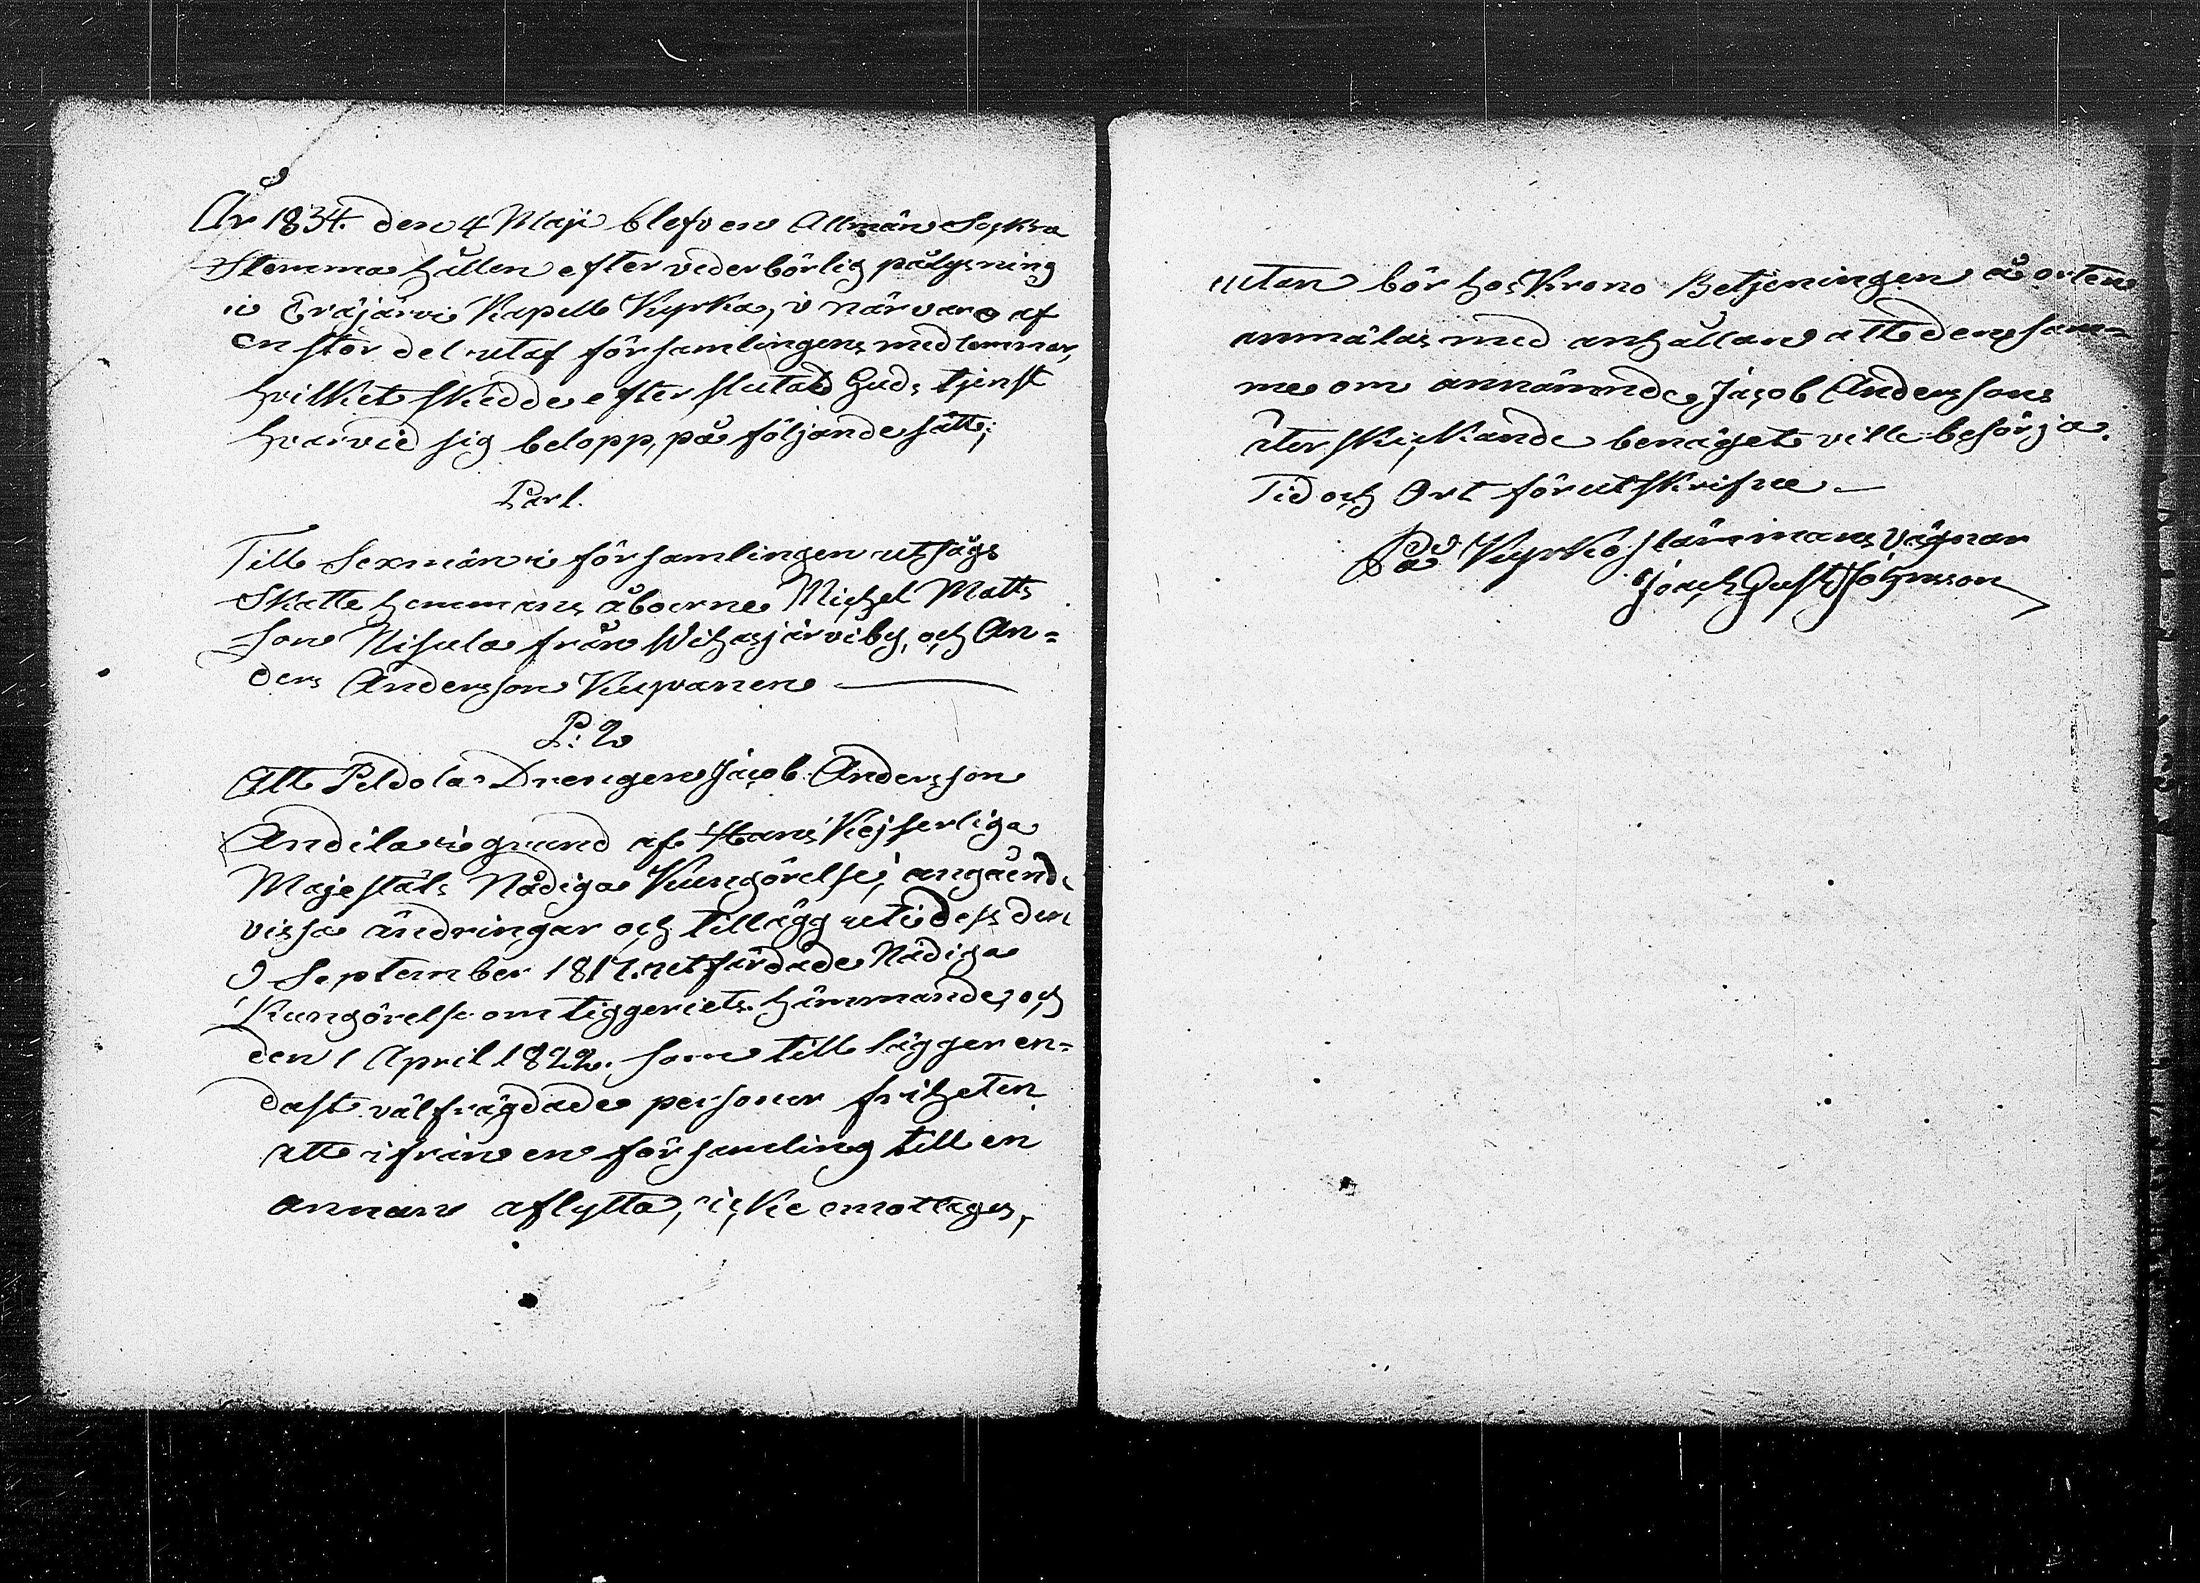 År 1834. den 4 Maji blef en Allmän Sockne
Stemma hållen efter vederbörlig pålysning
i Eräjärvi Kapell Kyrka, i närvaro af
en stor del utaf församlingens medlemmar,
hvilket skedde efter slutad Guds tjenst
hvarvid sig belopp, på följande sätt;
Par 1.
Till Sexmän i församlingen utsågs
Skatte hemmans åboerne Michel Matts
son Nisula från Wihasjärvi by, och An=
ders Andersson Kuparinen —
P: 2
Att Peldola Drengen Jacob Andersson
Andila i grund af Hans Kejserliga
Majestäts Nådiga Kungörelse, angående
vissa ändringar och tillägg uti dess den
9 September 1817. utfärdade Nådiga
Kungörelse om tiggeriets hämmande, och
den 1 April 1822. som till lägger en=
dast välfrägdade personer friheten
att ifrån en församling till en
annan aflytta, icke emottages,
utan bör hos Krono Betjeningen å orten
anmälas med anhållan att den sam=
me om annämnde Jacob Anderssons
återskickande benäget ville besörja.
Tid och Ort förutskrifne —
På Kyrkostämmans vägnar
Joach Gust Johnsson